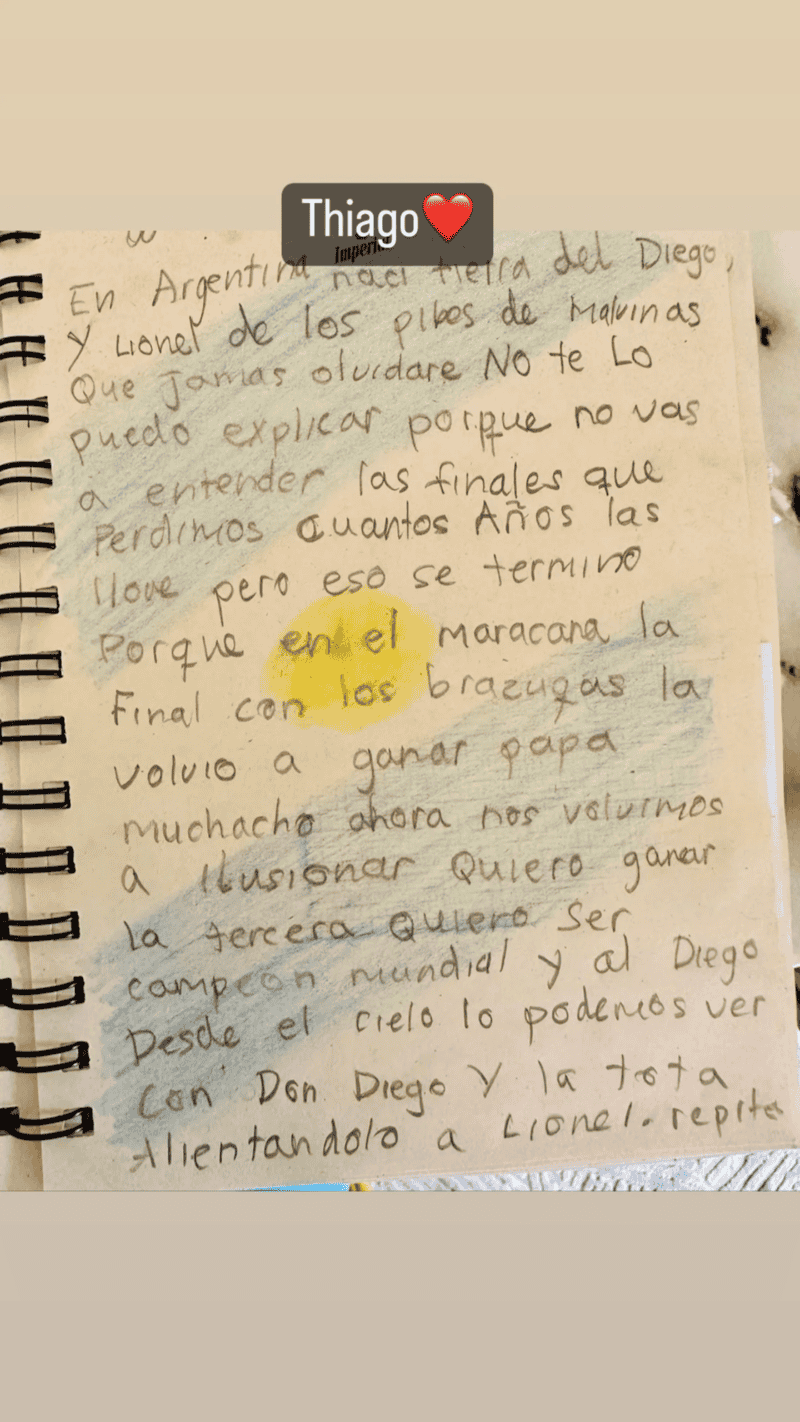 Thiago❤️
En Argentina naci tierra del Diego,
Y Lionel de los pibes de Malvinas
Que jamas olvidare NO te Lo
puedo explicar porque no vas
a entender las finales que
Perdimos cuantos Años las
llore pero eso se termino
Porque en el maracana la
Final con los brazugas la
volvio a ganar papa
muchacho ahora nos volvimos
a ilusionar Quiero ganar
la tercera Quiero Ser
campeon mundial y al Diego
Desde el cielo lo podemos ver
Con Don Diego Y la tota
Alientandolo a Lionel. repite